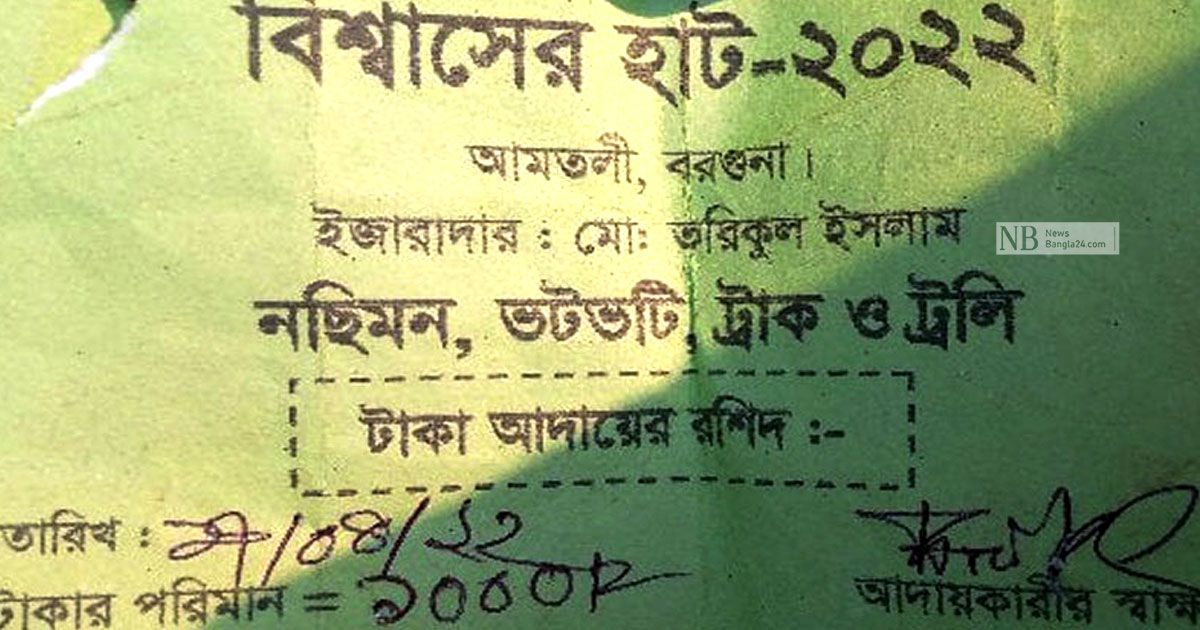 বিশ্বাসের হাট-২০২২
আমতলী, বরগুনা।
ইজারাদার : মোঃ তরিকুল ইসলাম
NB News
Bangla24.com
নছিমন, ভটভটি, ট্রাক ও ট্রলি
টাকা আদায়ের রশিদ :-
তারিখ : /০৪/২২
টাকার পরিমান = ১০০০/
আদায়কারীর